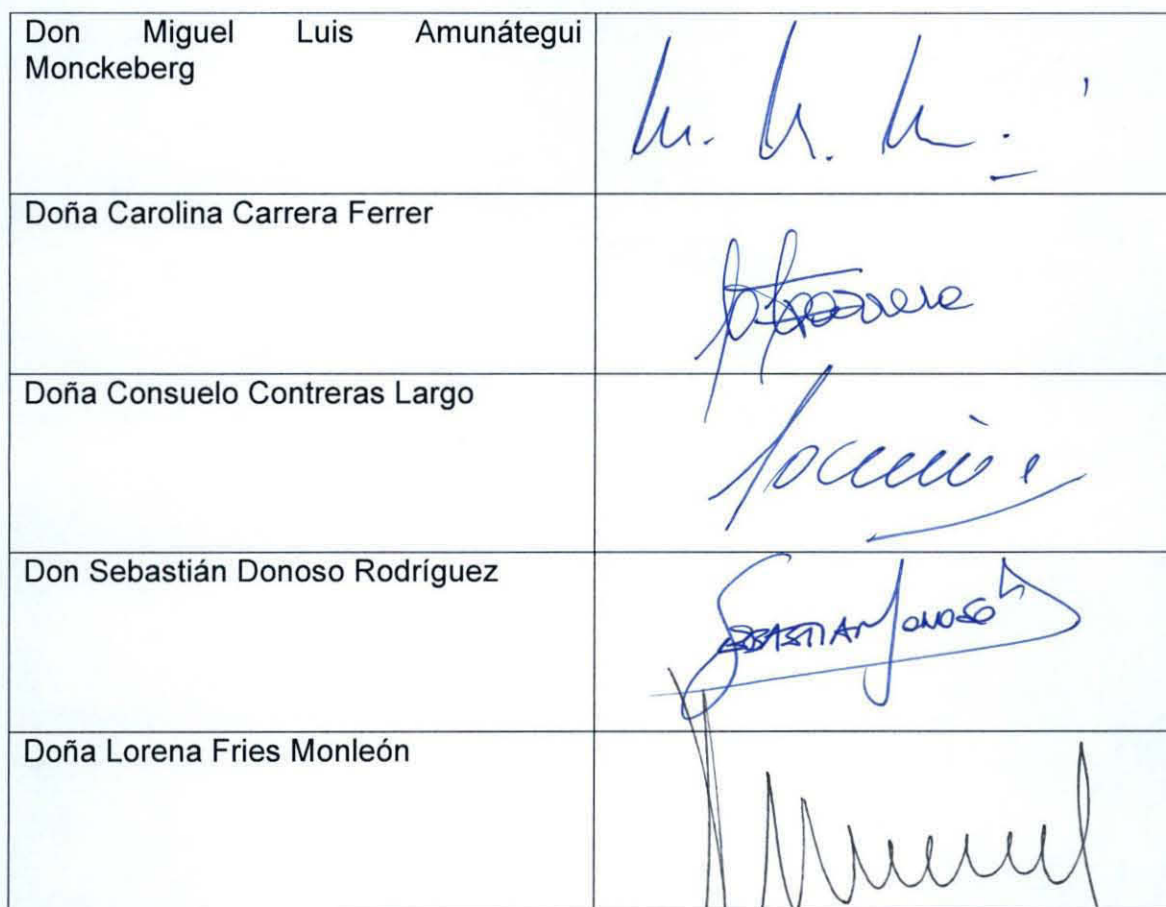 Don Miguel Luis Amunátegui
Monckeberg
Doña Carolina Carrera Ferrer
Doña Consuelo Contreras Largo
Don Sebastián Donoso Rodríguez
SEBASTIAN DONOSO
Doña Lorena Fries Monleón